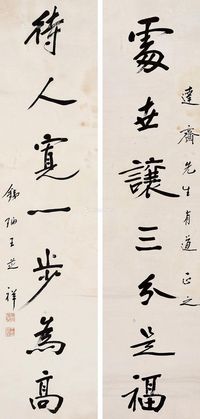 達齋先生有道正之
處世讓三分是福
待人寬一步為高
王祥